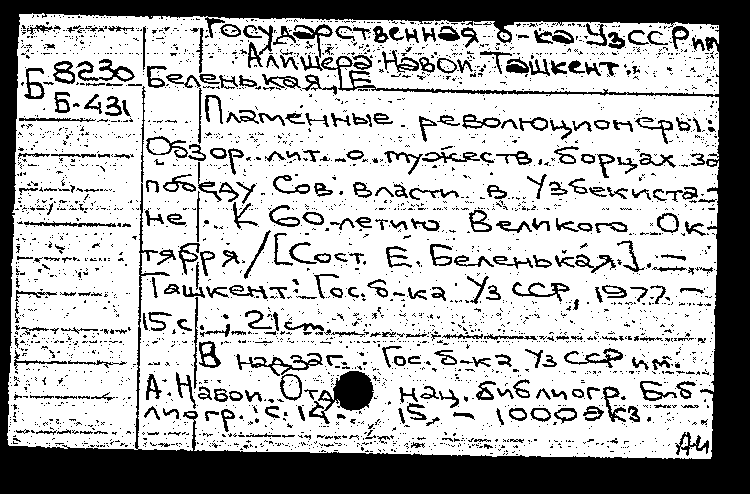 Государственная б-ка УзССР им
Алишера Навои. Ташкент.
Б 8230
Б-431
Беленькая, Е
Пламенные революционеры:
Обзор лит. о мужеств. борцах за
победу Сов. власти в Узбекиста-
не. К 60-летию Великого Ок-
тября / [Сост. Е. Беленькая.]. —
Ташкент: Гос. б-ка УзССР, 1977. —
15 с. ; 21 cm.
В надзаг.: Гос. б-ка УзССР им.
А. Навои. Отд нац. библиогр. Биб-
лиогр.: с. 14- 15. — 1000 экз.